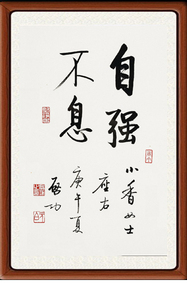 自强
不息
小香女士
座右
庚午夏
启功